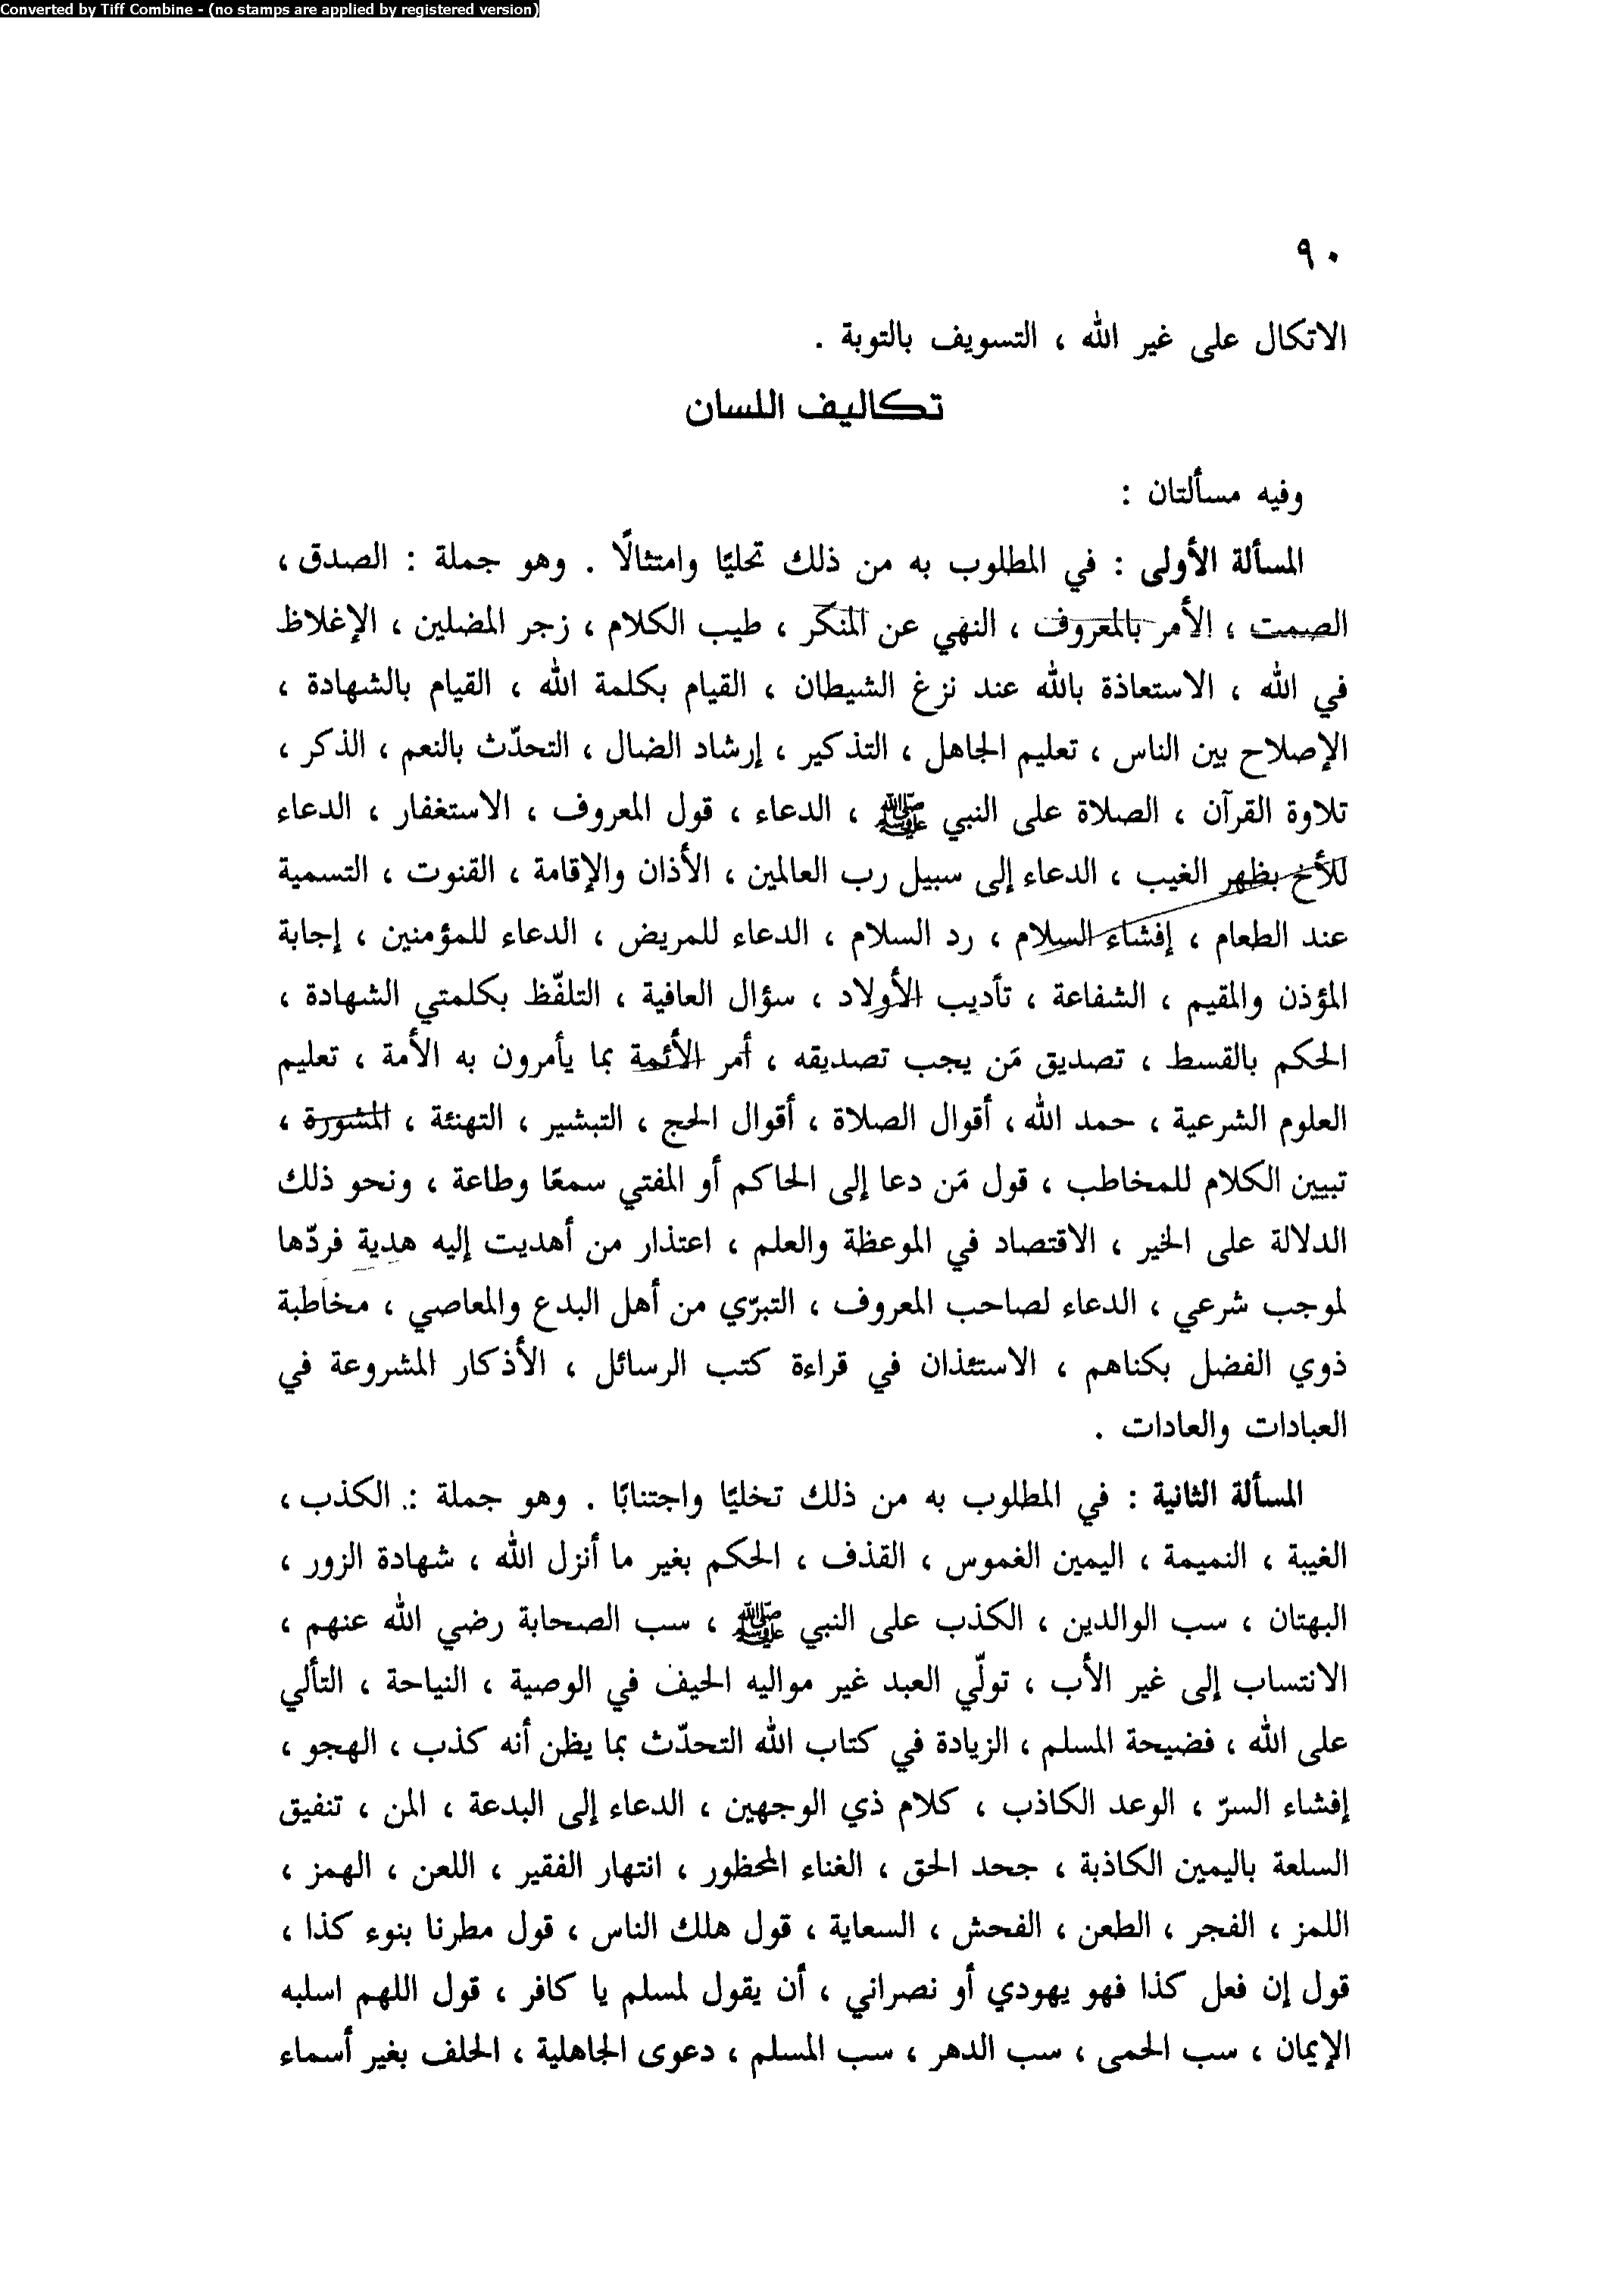 Converted by Tiff Combine - (no stamps are applied by registered version)
٩٠
الاتكال على غير الله ، التسويف بالتوبة .
تكاليف اللسان
وفيه مسألتان :
المسألة الأولى : في المطلوب به من ذلك تحليًا وامتثالًا . وهو جملة : الصدق ،
الصمت ، الأمر بالمعروف ، النهي عن المنكر ، طيب الكلام ، زجر المضلين ، الإغلاظ
في الله ، الاستعاذة بالله عند نزغ الشيطان ، القيام بكلمة الله ، القيام بالشهادة ،
الإصلاح بين الناس ، تعليم الجاهل ، التذكير ، إرشاد الضال ، التحدّث بالنعم ، الذكر ،
تلاوة القرآن ، الصلاة على النبي ﷺ ، الدعاء ، قول المعروف ، الاستغفار ، الدعاء
للأخ بظهر الغيب ، الدعاء إلى سبيل رب العالمين ، الأذان والإقامة ، القنوت ، التسمية
عند الطعام ، إفشاء السلام ، رد السلام ، الدعاء للمريض ، الدعاء للمؤمنين ، إجابة
المؤذن والمقيم ، الشفاعة ، تأديب الأولاد ، سؤال العافية ، التلفّظ بكلمتي الشهادة ،
الحكم بالقسط ، تصديق مَن يجب تصديقه ، أمر الأئمة بما يأمرون به الأمة ، تعليم
العلوم الشرعية ، حمد الله ، أقوال الصلاة ، أقوال الحج ، التبشير ، التهنئة ، المشورة ،
تبيين الكلام للمخاطب ، قول مَن دعا إلى الحاكم أو المفتي سمعًا وطاعة ، ونحو ذلك
الدلالة على الخير ، الاقتصاد في الموعظة والعلم ، اعتذار من أهديت إليه هدية فردّها
لموجب شرعي ، الدعاء لصاحب المعروف ، التبرّي من أهل البدع والمعاصي ، مخاطبة
ذوي الفضل بكناهم ، الاستئذان في قراءة كتب الرسائل ، الأذكار المشروعة في
العبادات والعادات .
المسألة الثانية : في المطلوب به من ذلك تخليًا واجتنابًا . وهو جملة : الكذب ،
الغيبة ، النميمة ، اليمين الغموس ، القذف ، الحكم بغير ما أنزل الله ، شهادة الزور ،
البهتان ، سب الوالدين ، الكذب على النبي ﷺ ، سب الصحابة رضي الله عنهم ،
الانتساب إلى غير الأب ، تولّي العبد غير مواليه الحيف في الوصية ، النياحة ، التألي
على الله ، فضيحة المسلم ، الزيادة في كتاب الله التحدّث بما يظن أنه كذب ، الهجو ،
إفشاء السرّ ، الوعد الكاذب ، كلام ذي الوجهين ، الدعاء إلى البدعة ، المن ، تنفيق
السلعة باليمين الكاذبة ، جحد الحق ، الغناء المحظور ، انتهار الفقير ، اللعن ، الهمز ،
اللمز ، الفجر ، الطعن ، الفحش ، السعاية ، قول هلك الناس ، قول مطرنا بنوء كذا ،
قول إن فعل كذا فهو يهودي أو نصراني ، أن يقول لمسلم يا كافر ، قول اللهم اسلبه
الإيمان ، سب الحمى ، سب الدهر ، سب المسلم ، دعوى الجاهلية ، الحلف بغير أسماء